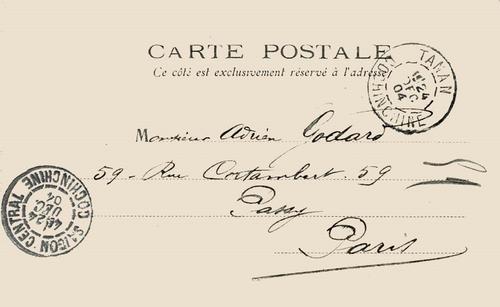 CARTE POSTALE
Ce côté est exclusivement réservé à l'adresse
TANAN
COCHINCHINE
24
DEC
04
Monsieur Adrien Godard
59 - Rue Cortambert. 59
Passy
Paris
SAIGON CENTRAL
COCHINCHINE
24
DEC
04